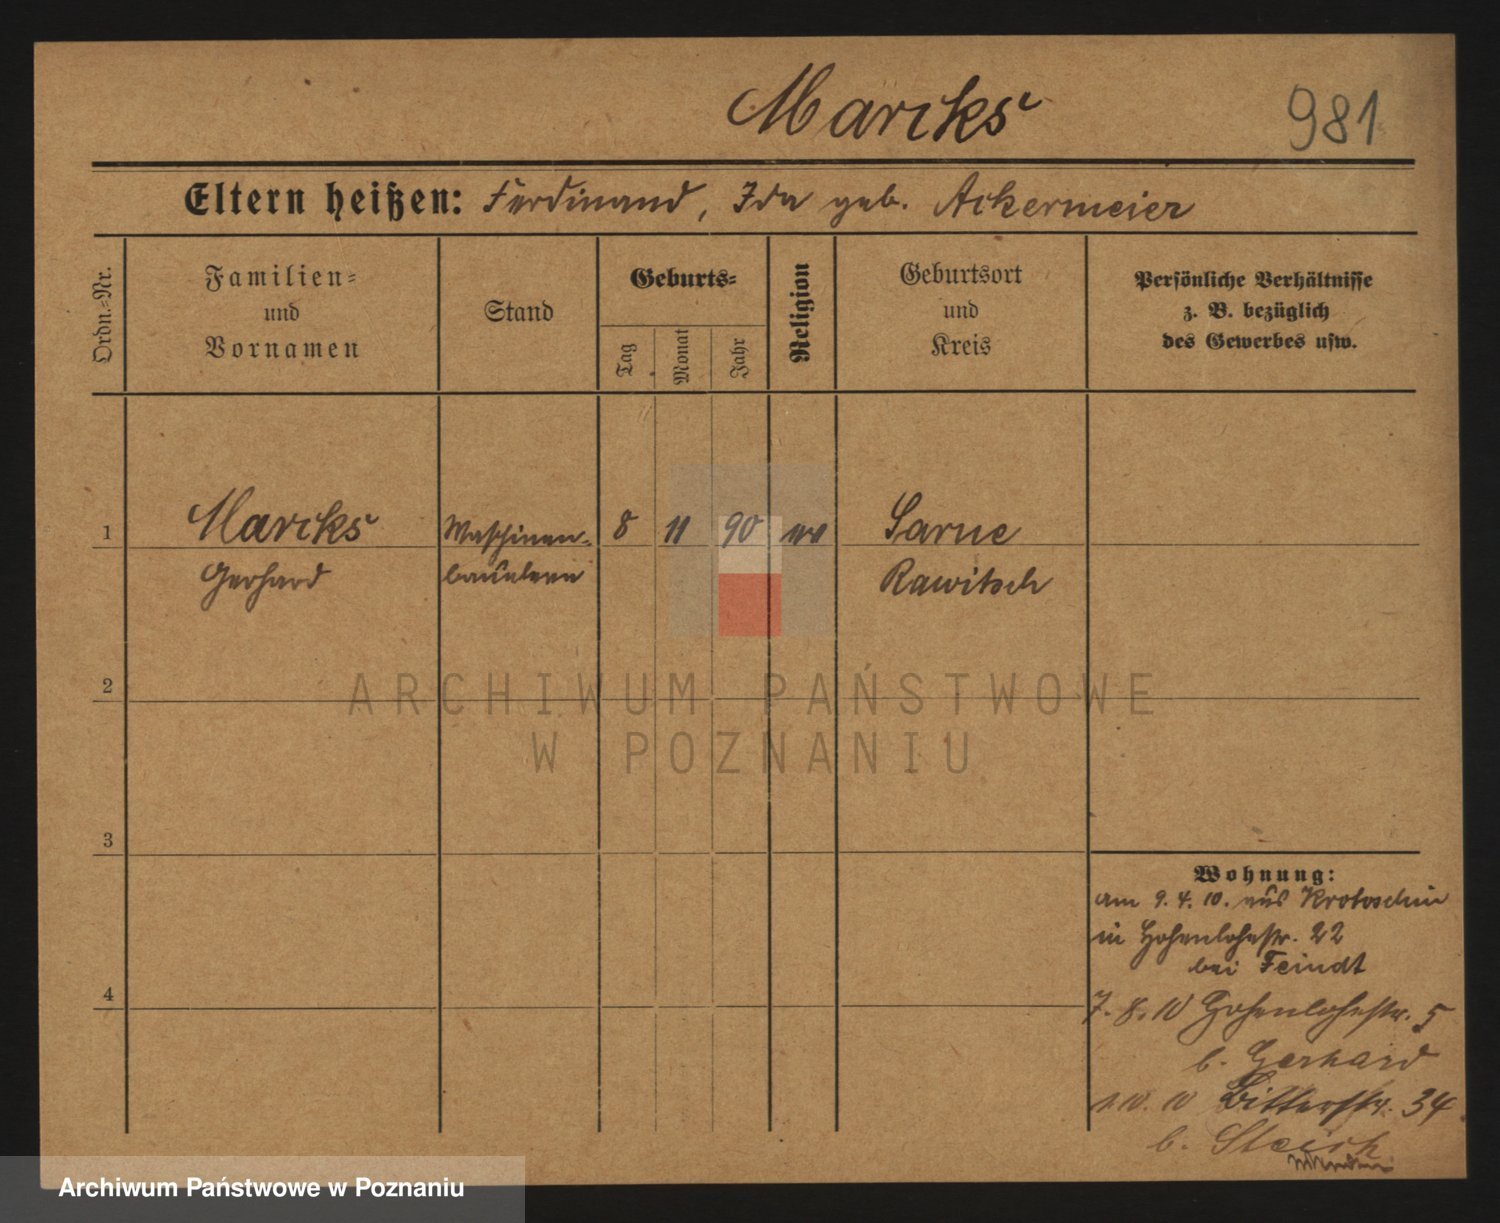 Marcks 981
Eltern heißen: Ferdinand, Ida geb. Ackermeier
Ordn.-Nr.
Familien-
und
Vornamen
Stand
Geburts-
Tag
Monat
Jahr
Religion
Geburtsort
und
Kreis
Persönliche Verhältnisse
z. B. bezüglich
des Gewerbes usw.
1 Marcks Maschinen- 8 11 90 ev Sarne
Gerhard Rawitsch
2
ARCHIWUM PAŃSTWOWE
W POZNANIU
3
Wohnung:
am 9. 4. 10. aus Krotoschin
in Hohenlohestr. 22
bei Feindt
4
7. 8. 10 Hohenlohestr. 5
b. Gerhard
1 10. 10 Bitterstr. 34
b.
Archiwum Państwowe w Poznaniu